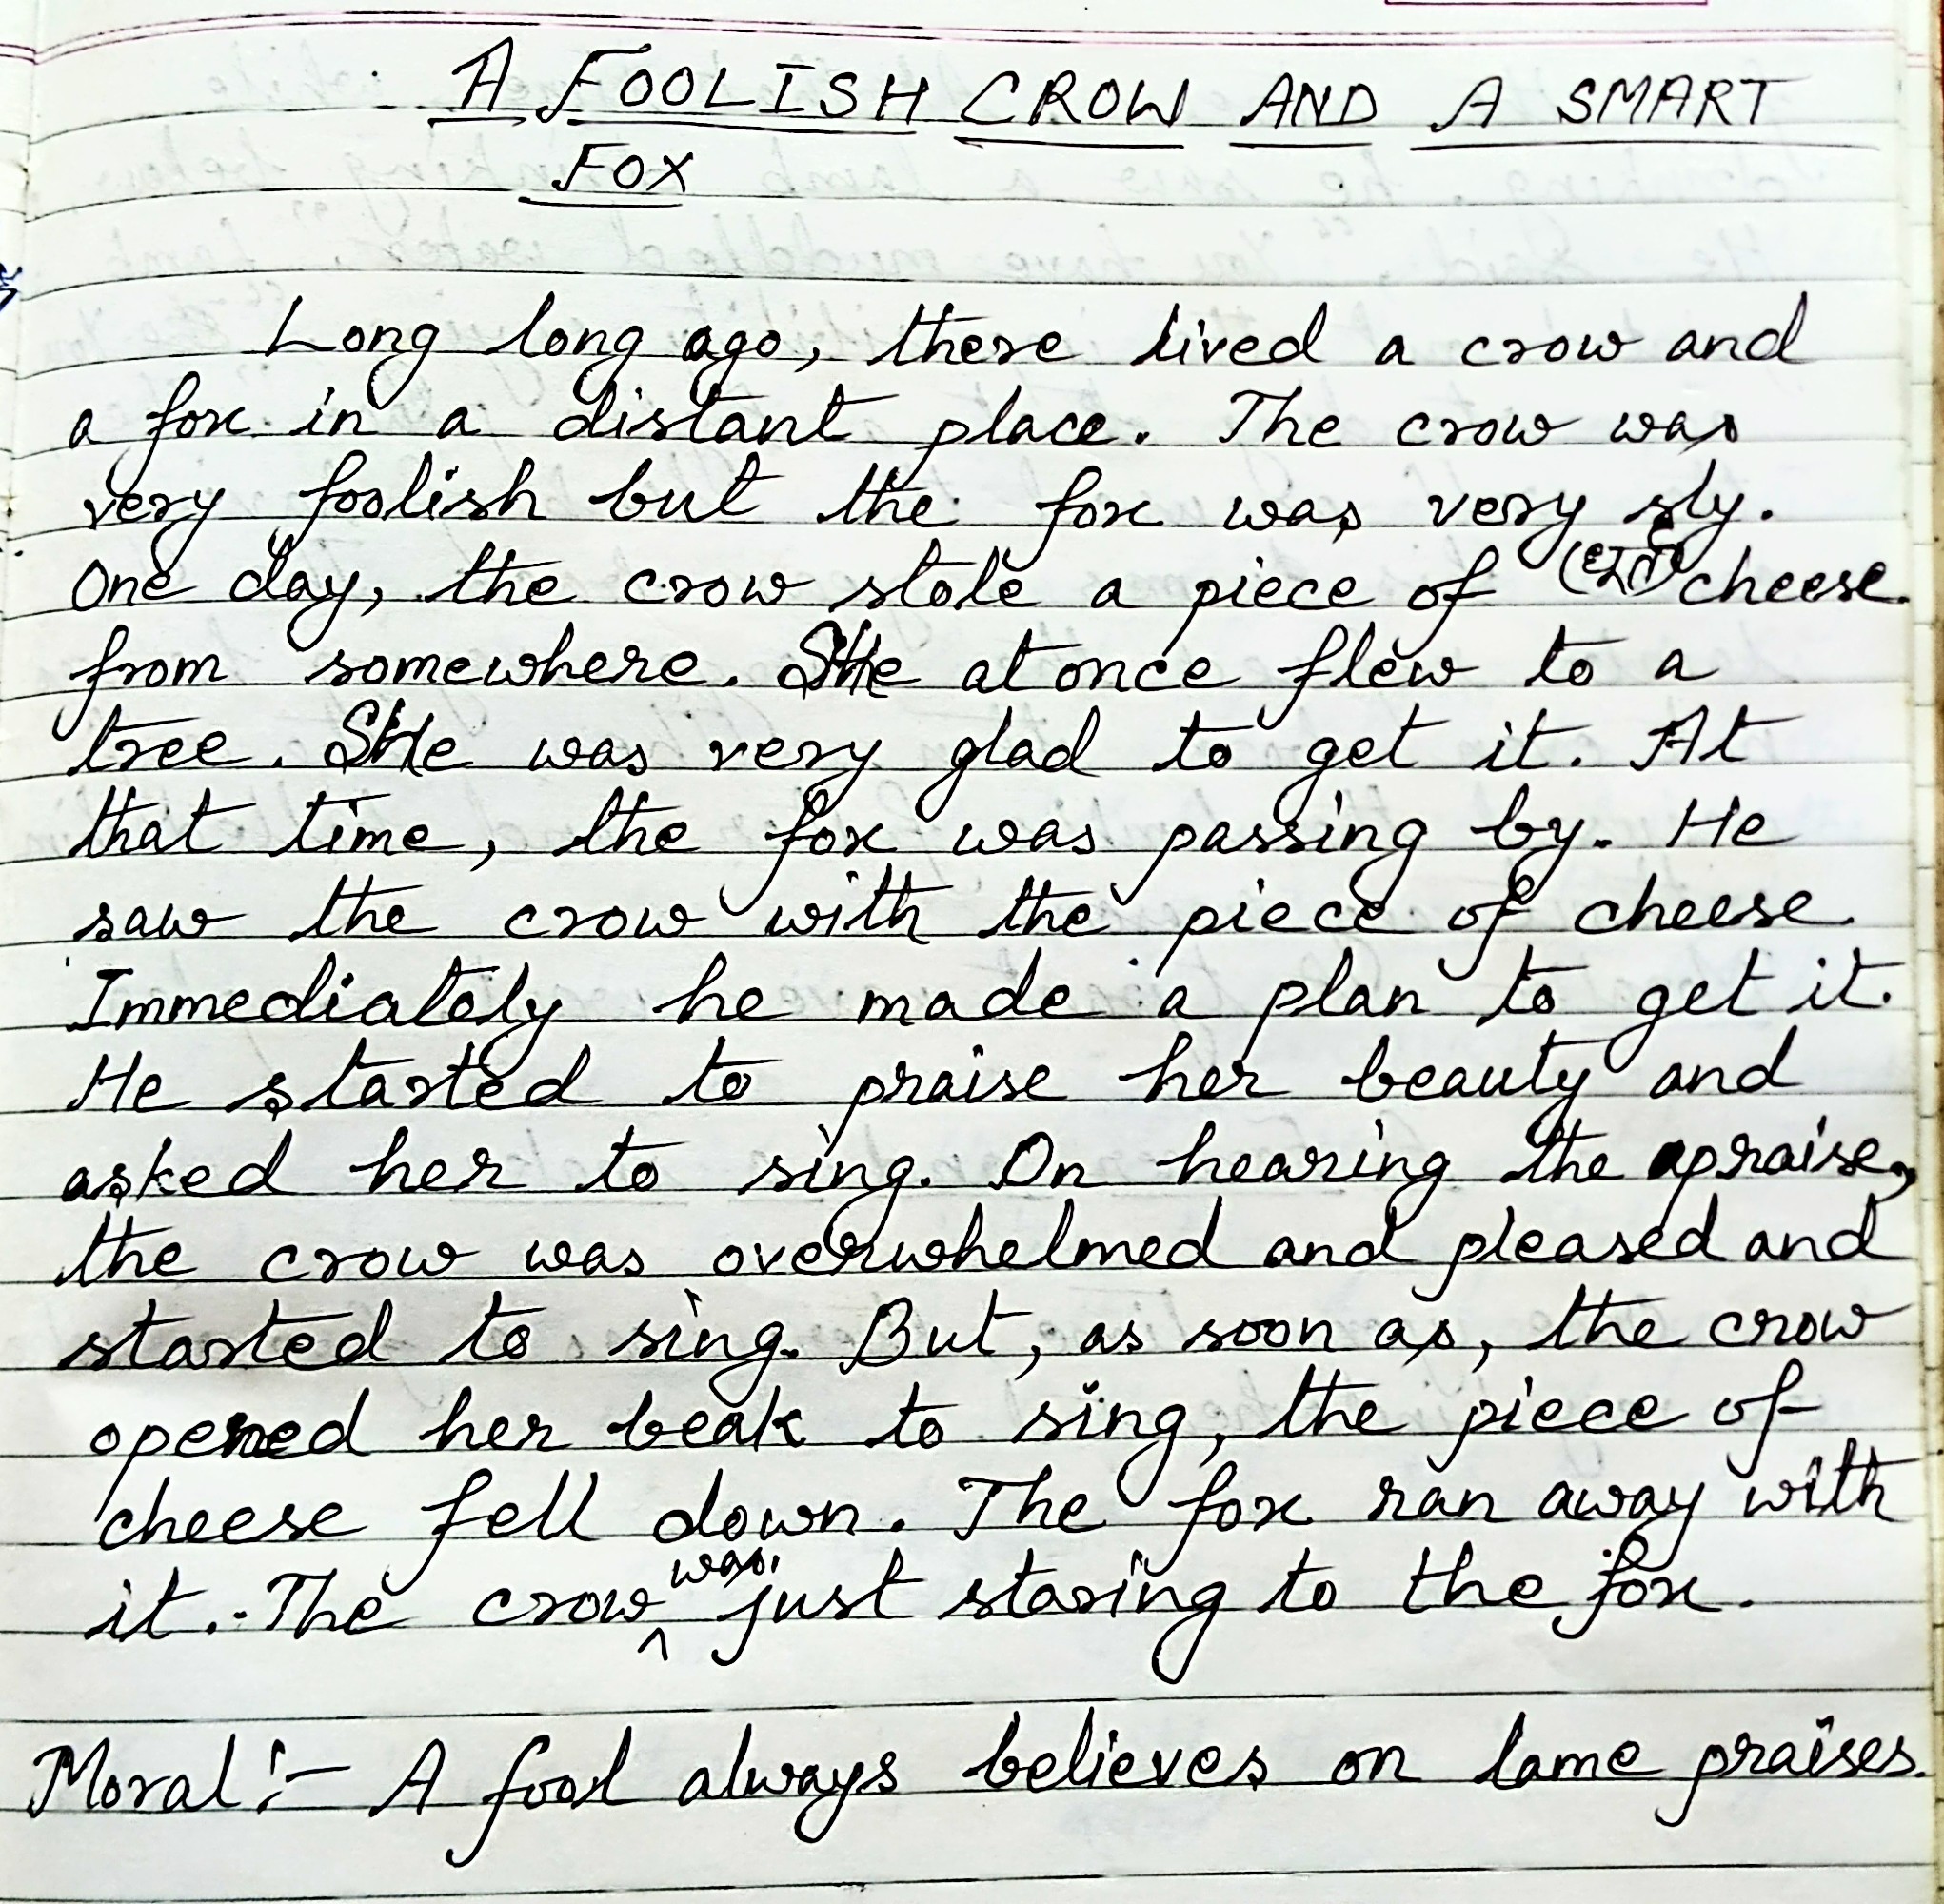 A FOOLISH CROW AND A SMART
FOX
Long long ago, there lived a crow and
a fox in a distant place. The crow was
very foolish but the fox was very sly.
One day, the crow stole a piece of cheese
from somewhere. She at once flew to a
tree. She was very glad to get it. At
that time, the fox was passing by. He
saw the crow with the piece of cheese.
Immediately he made a plan to get it.
He started to praise her beauty and
asked her to sing. On hearing the praise,
the crow was overwhelmed and pleased and
started to sing. But, as soon as, the crow
opened her beak to sing, the piece of
cheese fell down. The fox ran away with
it. The crow was just staring to the fox.
Moral :- A fool always believes on lame praises.